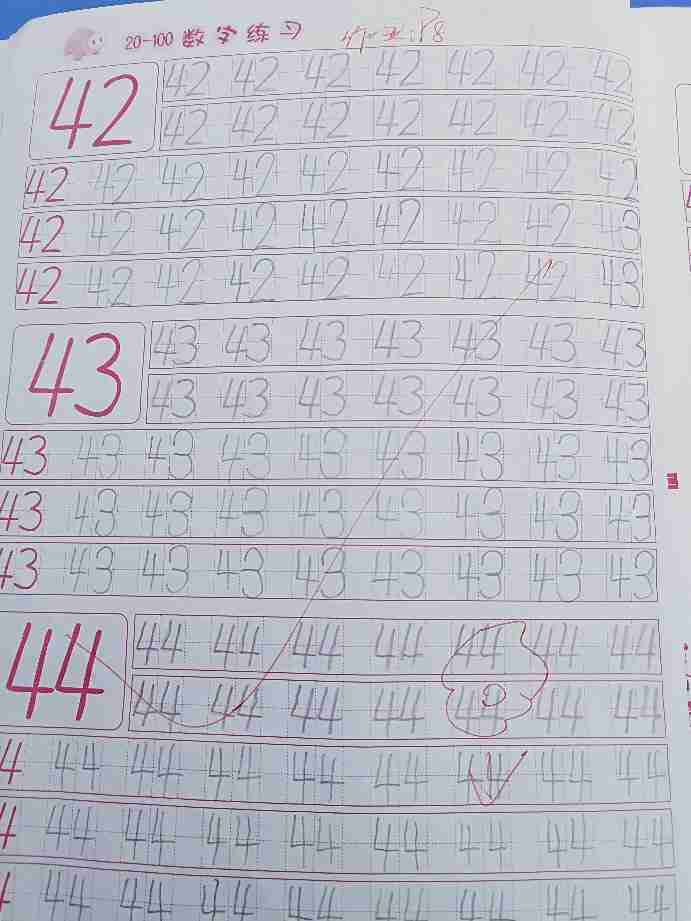 20-100 数字练习 作业:P8
42 42 42 42 42 42 42 42
42 42 42 42 42 42 42
42 42 42 42 42 42 42 42 42
42 42 42 42 42 42 42 42 43
42 42 42 42 42 42 42 42 43
43 43 43 43 43 43 43 43
43 43 43 43 43 43 43
43 43 43 43 43 43 43 43 43
43 43 43 43 43 43 43 43 43
43 43 43 43 43 43 43 43 43
44 44 44 44 44 44 44 44
44 44 44 44 44 44 44
4 44 44 44 44 44 44 44 44
4 44 44 44 44 44 44 44 44
44 44 44 44 44 44 44 44